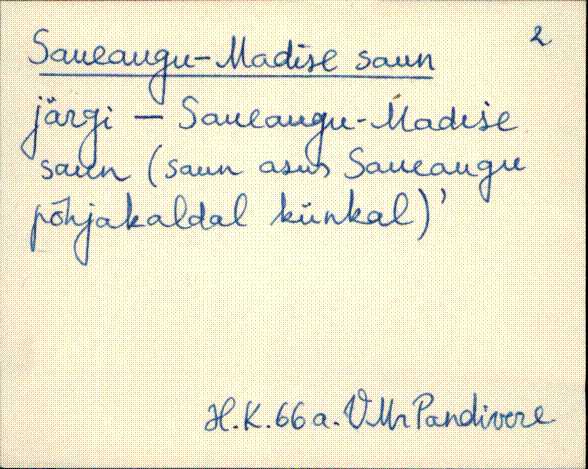 Saueaugu-Madise saun 2
järgi — Saueaugu-Madise
saun (saun asus Saueaugu
põhjakaldal künkal)'
H.K. 66 a. VMr Pandivere